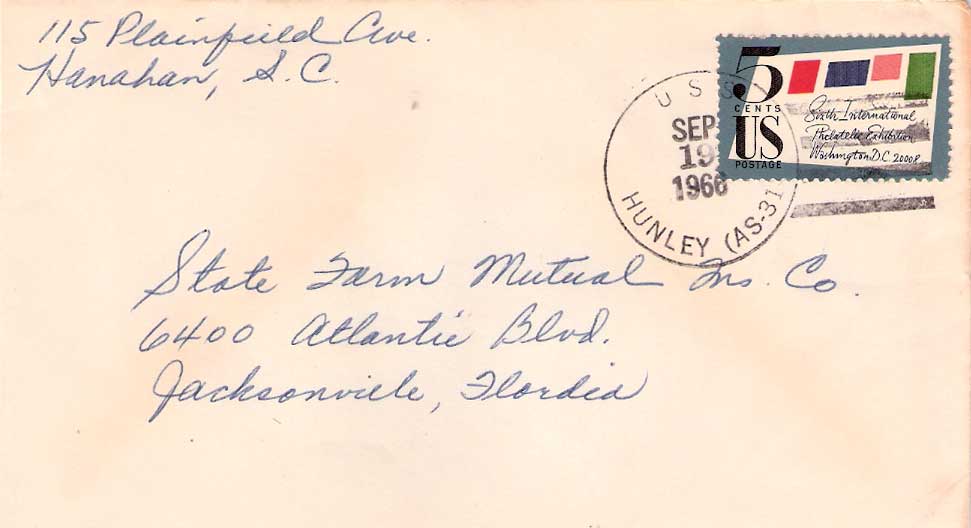 115 Plainfield Ave.
Hanahan, S.C.
5
CENTS
US
POSTAGE
Sixth International
Philatelic Exhibition
Washington D.C. 20008
USS
SEP
19
1966
HUNLEY (AS-31
State Farm Mutual Ins. Co.
6400 Atlantic Blvd.
Jacksonville, Flordia